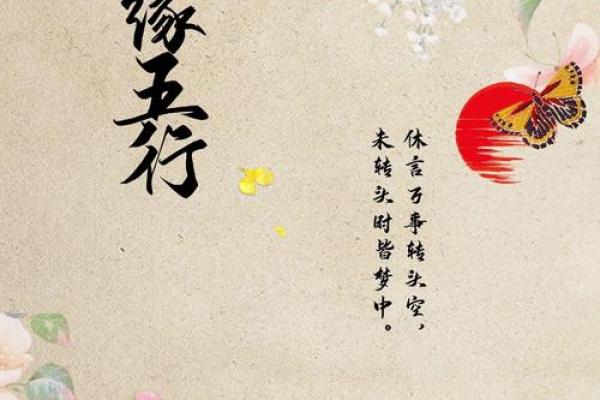 休言万事转头空，
未转头时皆梦中。
缘五行